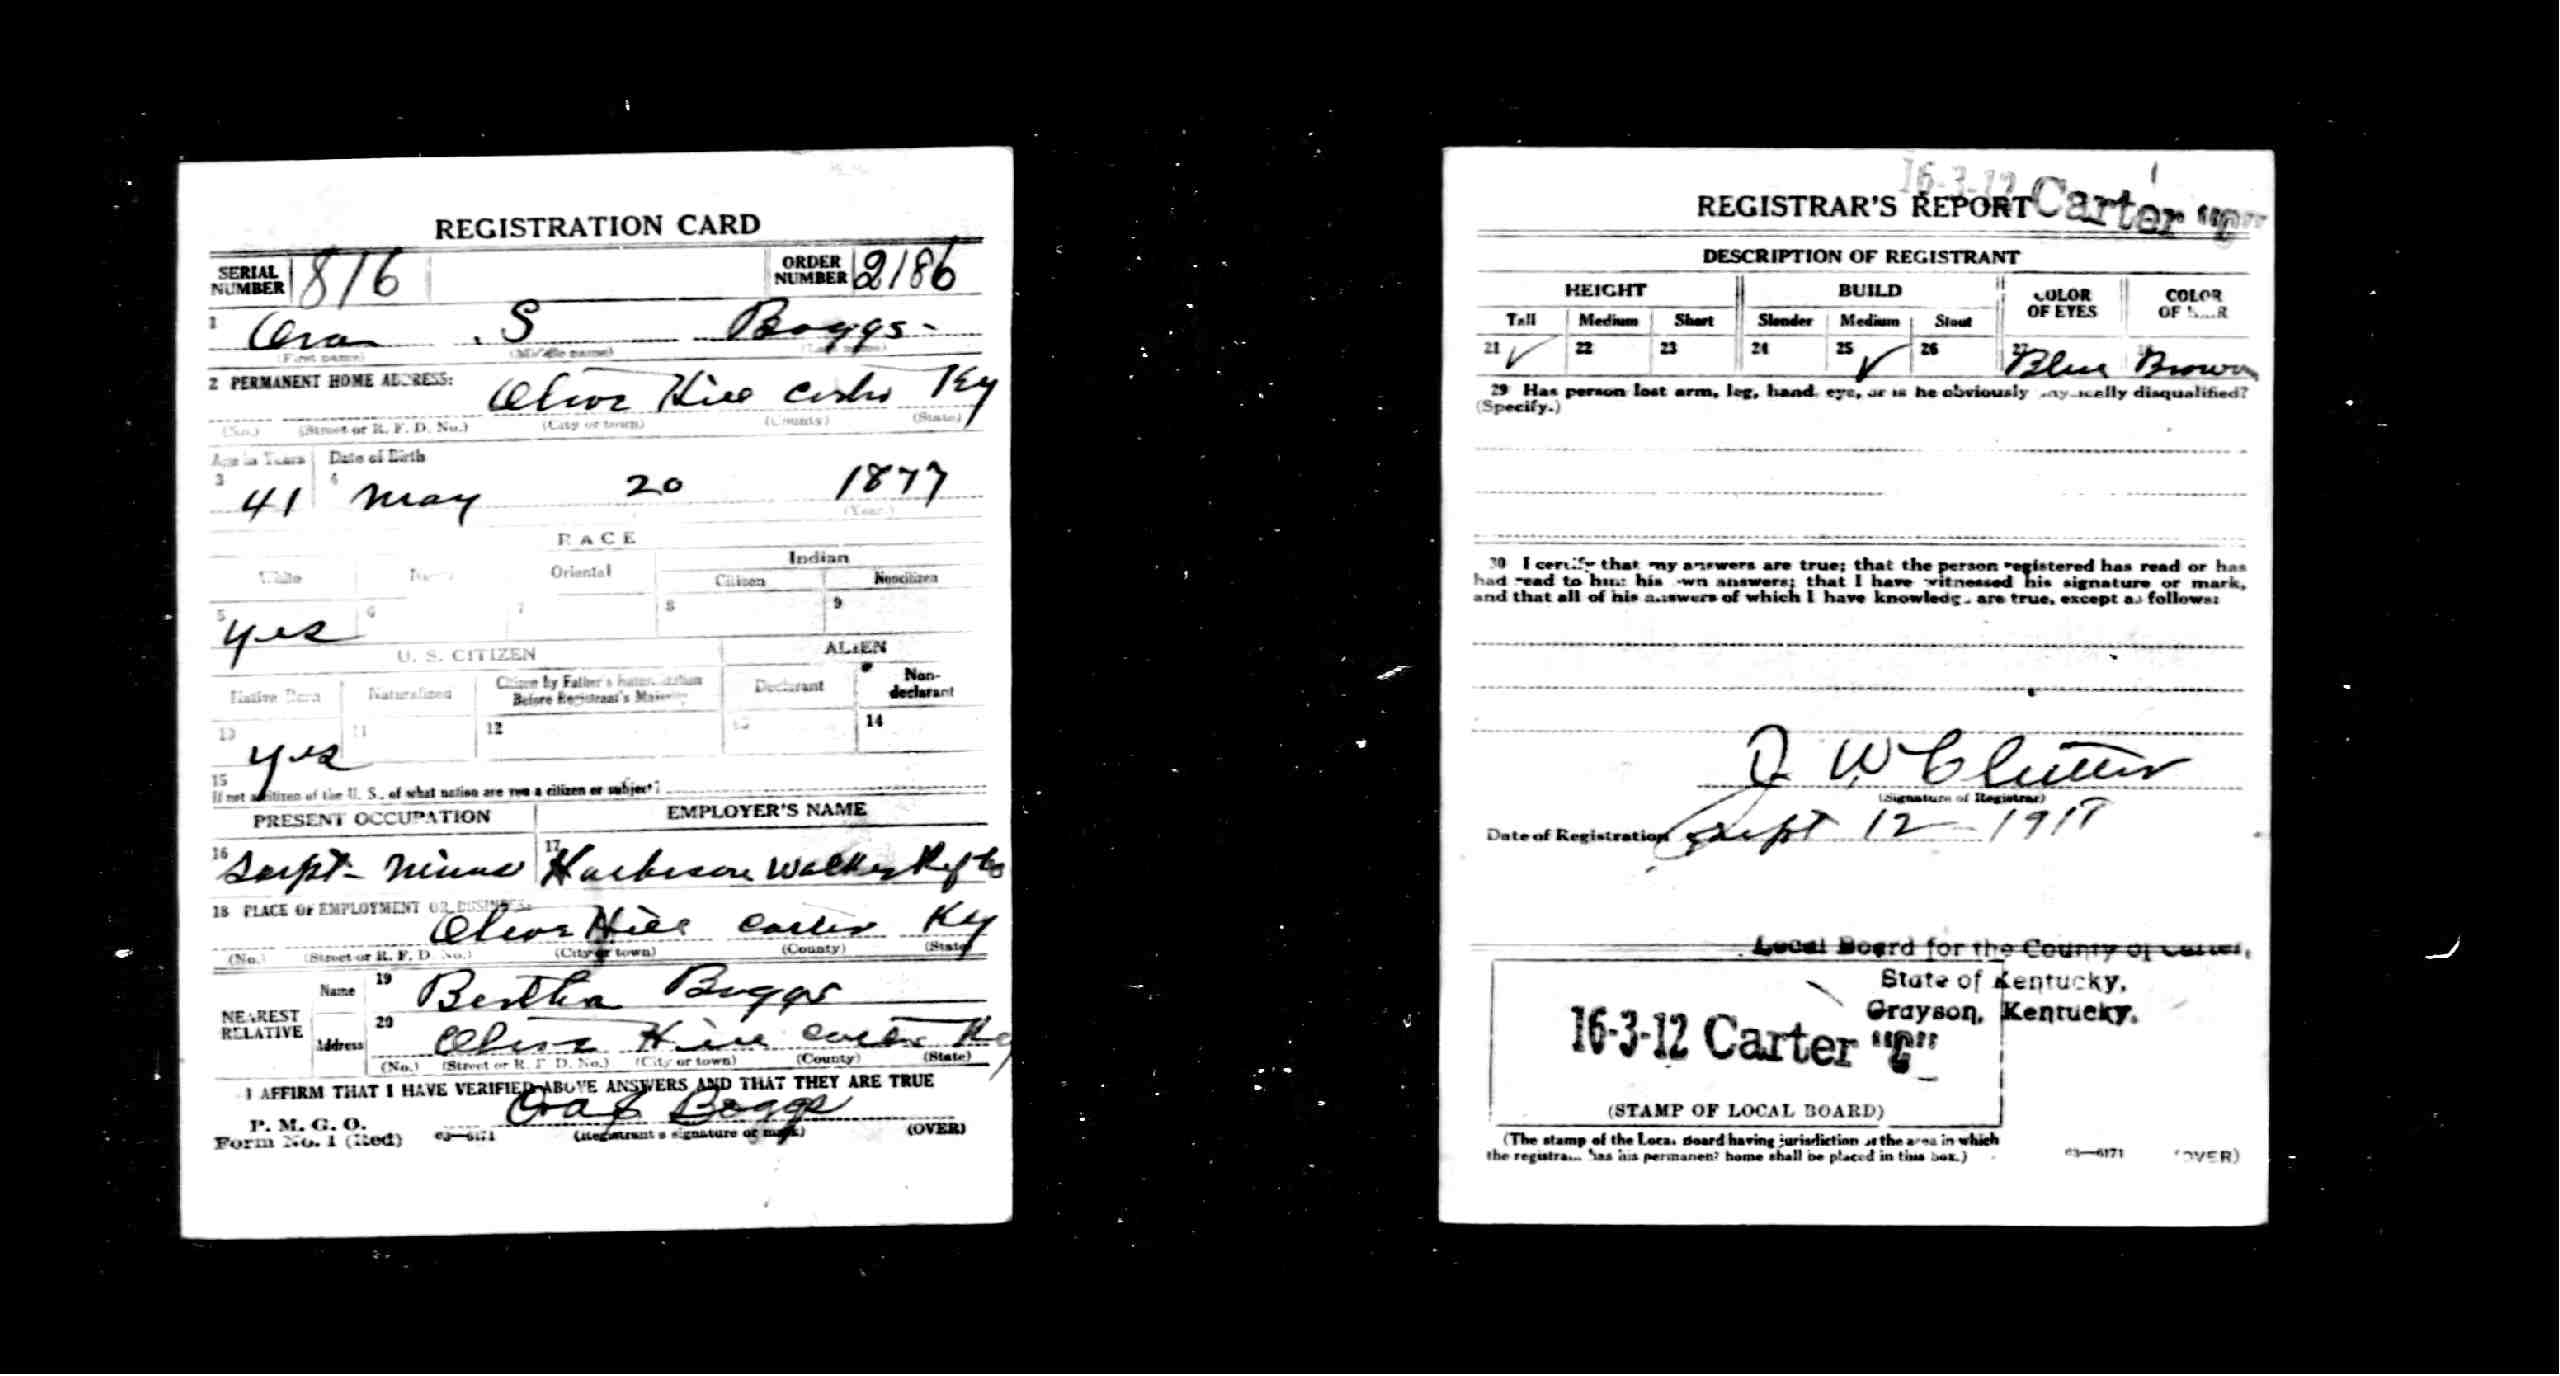 REGISTRATION CARD
SERIAL NUMBER 816 ORDER NUMBER 2186
1 Ora S Boggs
(First name) (Middle name) (Last name)
2 PERMANENT HOME ADDRESS:
Olive Hill Carter Ky
(No.) (Street or R. F. D. No.) (City or town) (County) (State)
Age in Years Date of Birth
3 41 4 May 20 1877
(Year.)
RACE
White Negro Oriental Indian
Citizen Noncitizen
5 6 7 8 9
yes
U. S. CITIZEN ALIEN
Native Born Naturalized Citizen by Father's Naturalization Before Registrant's Majority Declarant Non-declarant
10 11 12 13 14
yes
15
If not a citizen of the U. S., of what nation are you a citizen or subject?
PRESENT OCCUPATION EMPLOYER'S NAME
16 Supt- Mines 17 Harbison Walker Ref Co
18 PLACE OF EMPLOYMENT OR BUSINESS:
Olive Hill Carter Ky
(No.) (Street or R. F. D. No.) (City or town) (County) (State)
NEAREST RELATIVE
Name 19 Bertha Boggs
Address 20 Olive Hill Carter Ky
(No.) (Street or R. F. D. No.) (City or town) (County) (State)
I AFFIRM THAT I HAVE VERIFIED ABOVE ANSWERS AND THAT THEY ARE TRUE
P. M. G. O.
Form No. 1 (Red) 03—6171 Ora S Boggs
(Registrant's signature or mark) (OVER)
16-3-12 Carter "C"
REGISTRAR'S REPORT
DESCRIPTION OF REGISTRANT
HEIGHT BUILD COLOR OF EYES COLOR OF HAIR
Tall Medium Short Slender Medium Stout
21 ✓ 22 23 24 25 ✓ 26 27 Blue 28 Brown
29 Has person lost arm, leg, hand, eye, or is he obviously physically disqualified?
(Specify.)
30 I certify that my answers are true; that the person registered has read or has
had read to him his own answers; that I have witnessed his signature or mark,
and that all of his answers of which I have knowledge are true, except as follows:
W Clutter
(Signature of Registrar)
Date of Registration Sept 12 - 1918
Local Board for the County of Carter,
State of Kentucky,
Grayson, Kentucky.
16-3-12 Carter "C"
(STAMP OF LOCAL BOARD)
(The stamp of the Local Board having jurisdiction of the area in which
the registrant has his permanent home shall be placed in this box.)
03—6171 (OVER)